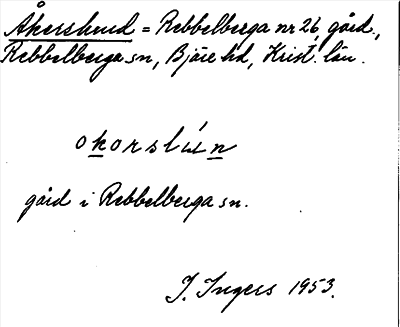 Åkerslund = Rebbelberga nr 26, gård,
Rebbelberga sn, Bjäre hd, Krist. län.
okorslún
gård i Rebbelberga sn.
I. Ingers 1953.